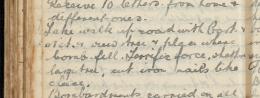 Receive 10 letters from home &
different ones.
Take walk up road with Bart &
view tree & place where
bomb fell. Terrific force, shattered
large tree, cut iron rails like
clay.
Bombardments carried on all